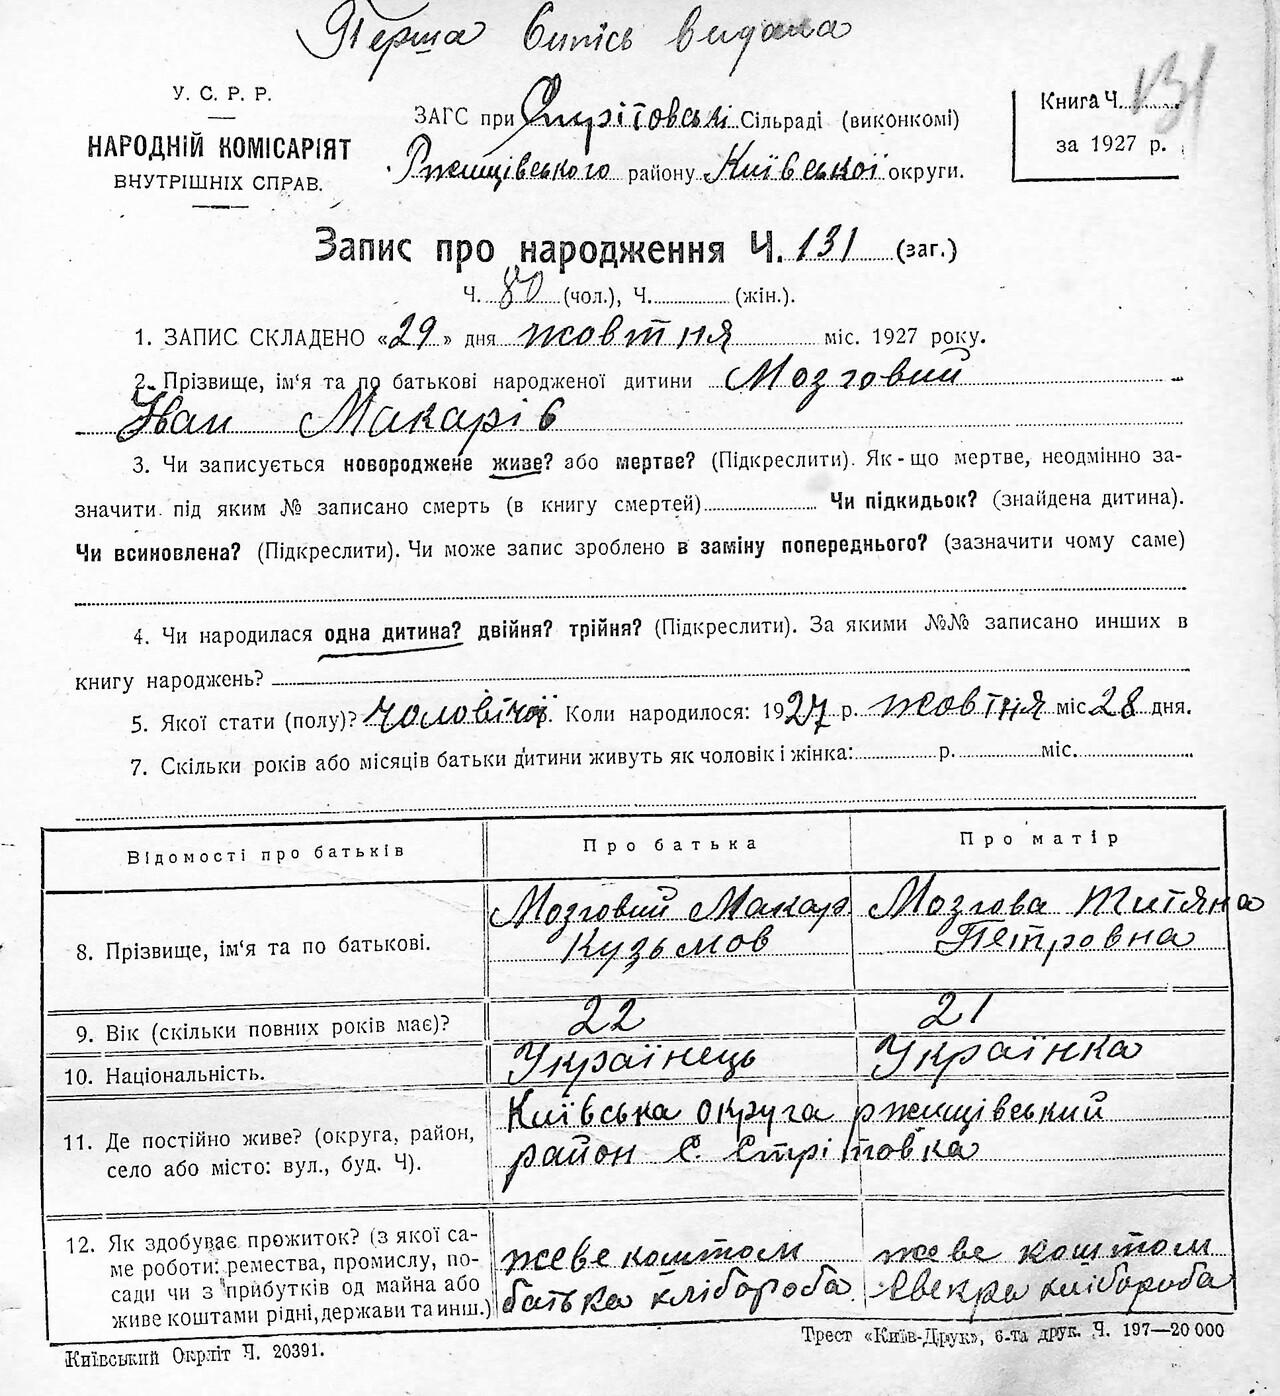 Перша Випісь видана
У. С. Р. Р.
НАРОДНІЙ КОМІСАРІЯТ
ВНУТРІШНІХ СПРАВ.
ЗАГС при Стрітовські Сільраді (виконкомі)
Ржищівського району Київської округи.
Книга Ч. 131
за 1927 р.
Запис про народження Ч. 131 (заг.)
Ч. 80 (чол.), Ч. (жін.).
1. ЗАПИС СКЛАДЕНО «29» дня жовтня міс. 1927 року.
2. Прізвище, ім'я та по батькові народженої дитини Мозговий
Іван Макарів
3. Чи записується новороджене живе? або мертве? (Підкреслити). Як-що мертве, неодмінно за-
значити під яким № записано смерть (в книгу смертей) Чи підкидьок? (знайдена дитина).
Чи всиновлена? (Підкреслити). Чи може запис зроблено в заміну попереднього? (зазначити чому саме)
4. Чи народилася одна дитина? двійня? трійня? (Підкреслити). За якими №№ записано инших в
книгу народжень?
5. Якої стати (полу)? чоловічої. Коли народилося: 1927 р. жовтня міс 28 дня.
7. Скільки років або місяців батьки дитини живуть як чоловік і жінка: р. міс.
Відомості про батьків Про батька Про матір
8. Прізвище, ім'я та по батькові. Мозговий Макар Кузьмов Мозгова Титяна Петровна
9. Вік (скільки повних років має)? 22 21
10. Національність. Українець Українка
11. Де постійно живе? (округа, район,
село або місто: вул., буд. Ч). Київська округа ржищівський
район с. Стрітовка
12. Як здобуває прожиток? (з якої са-
ме роботи: ремества, промислу, по-
сади чи з прибутків од майна або
живе коштами рідні, держави та инш.) жеве коштом
батька хлібороба жеве коштом
свекра хлібороба
Київський Окрліт Ч. 20391.
Трест «Київ-Друк», 6-та друк. Ч. 197—20 000